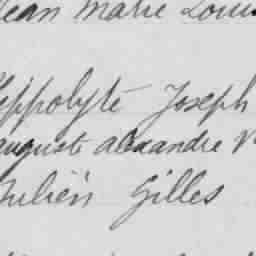 Jean Marie Louis
Hippolyte Joseph
auguste alexandre V
Julien Gilles